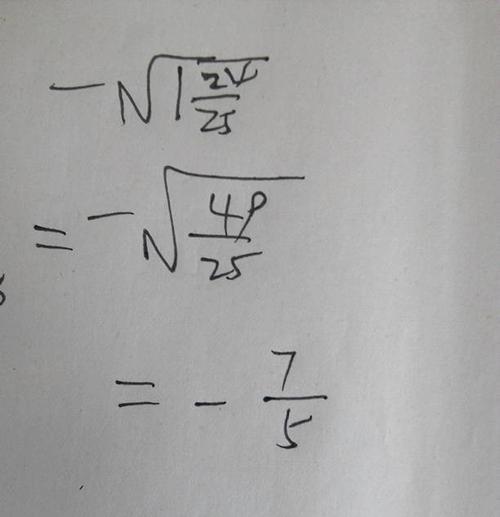 -√1 24/25
= -√49/25
= - 7/5